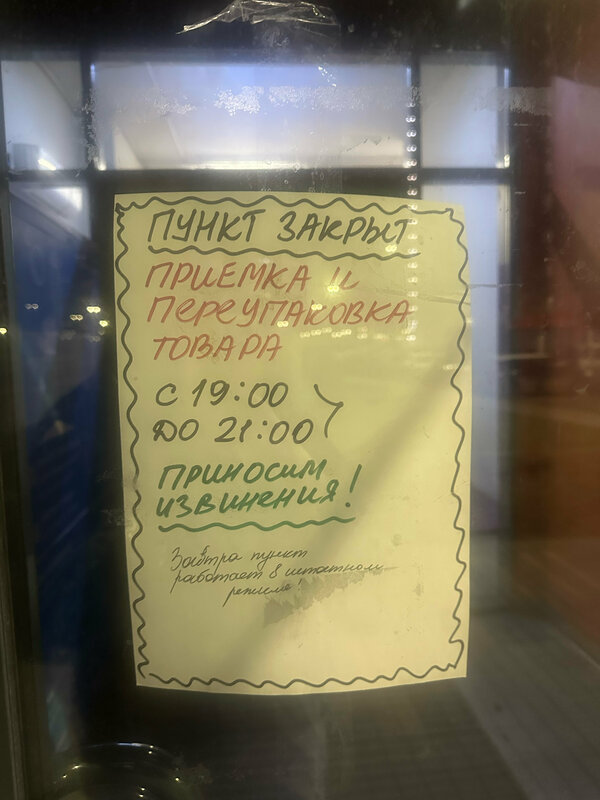 ПУНКТ ЗАКРЫТ
ПРИЕМКА И
ПЕРЕУПАКОВКА
ТОВАРА
С 19:00
ДО 21:00
ПРИНОСИМ
ИЗВИНЕНИЯ!
Завтра пункт
работает в штатном
режиме!